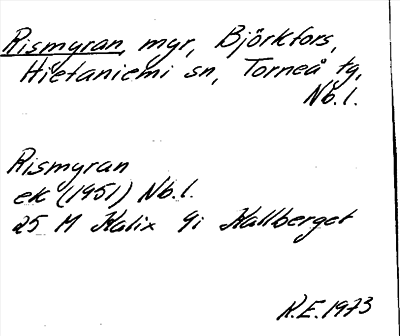 Rismyran, myr, Björkfors,
Hietaniemi sn, Torneå tg,
Nb.l.
Rismyran
ek (1951) Nb.l.
25 M Kalix 9i Kallberget
K.E.1973